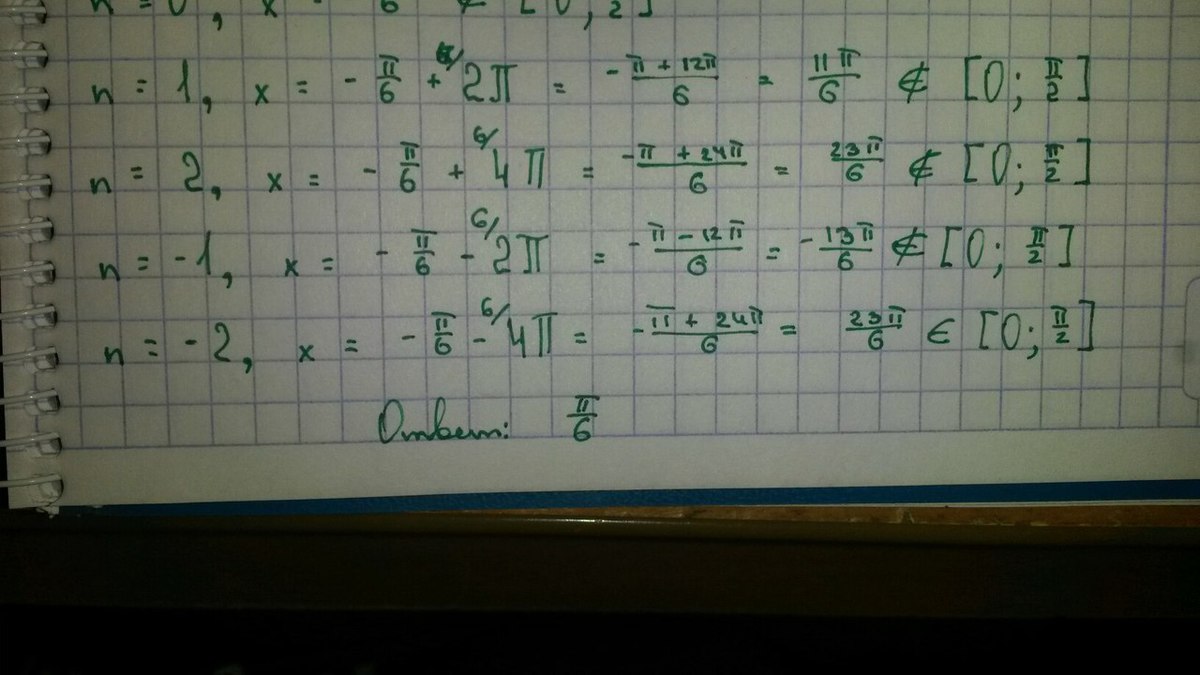 n = 0, x = - π/6 ∉ [0; π/2]
n = 1, x = - π/6 + 6/2π = -π + 12π/6 = 11π/6 ∉ [0; π/2]
n = 2, x = - π/6 + 6/4π = -π + 24π/6 = 23π/6 ∉ [0; π/2]
n = -1, x = - π/6 - 6/2π = -π - 12π/6 = -13π/6 ∉ [0; π/2]
n = -2, x = - π/6 - 6/4π = -π + 24π/6 = 23π/6 ∈ [0; π/2]
Ответ: π/6